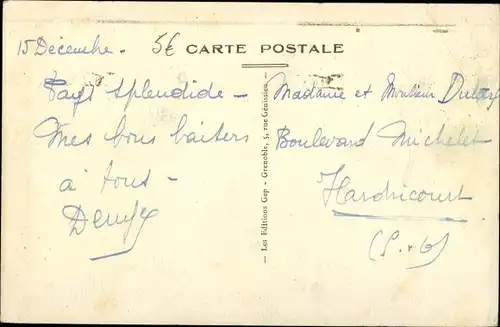 15 Décembre.
5€
CARTE POSTALE
Pays splendide -
Mes bons baisers
à tous -
Denyse
Les Editions Gep - Grenoble, 5, rue Génissieu
Madame et Monsieur
Boulevard Michelet
Hardricourt
(S. & O)